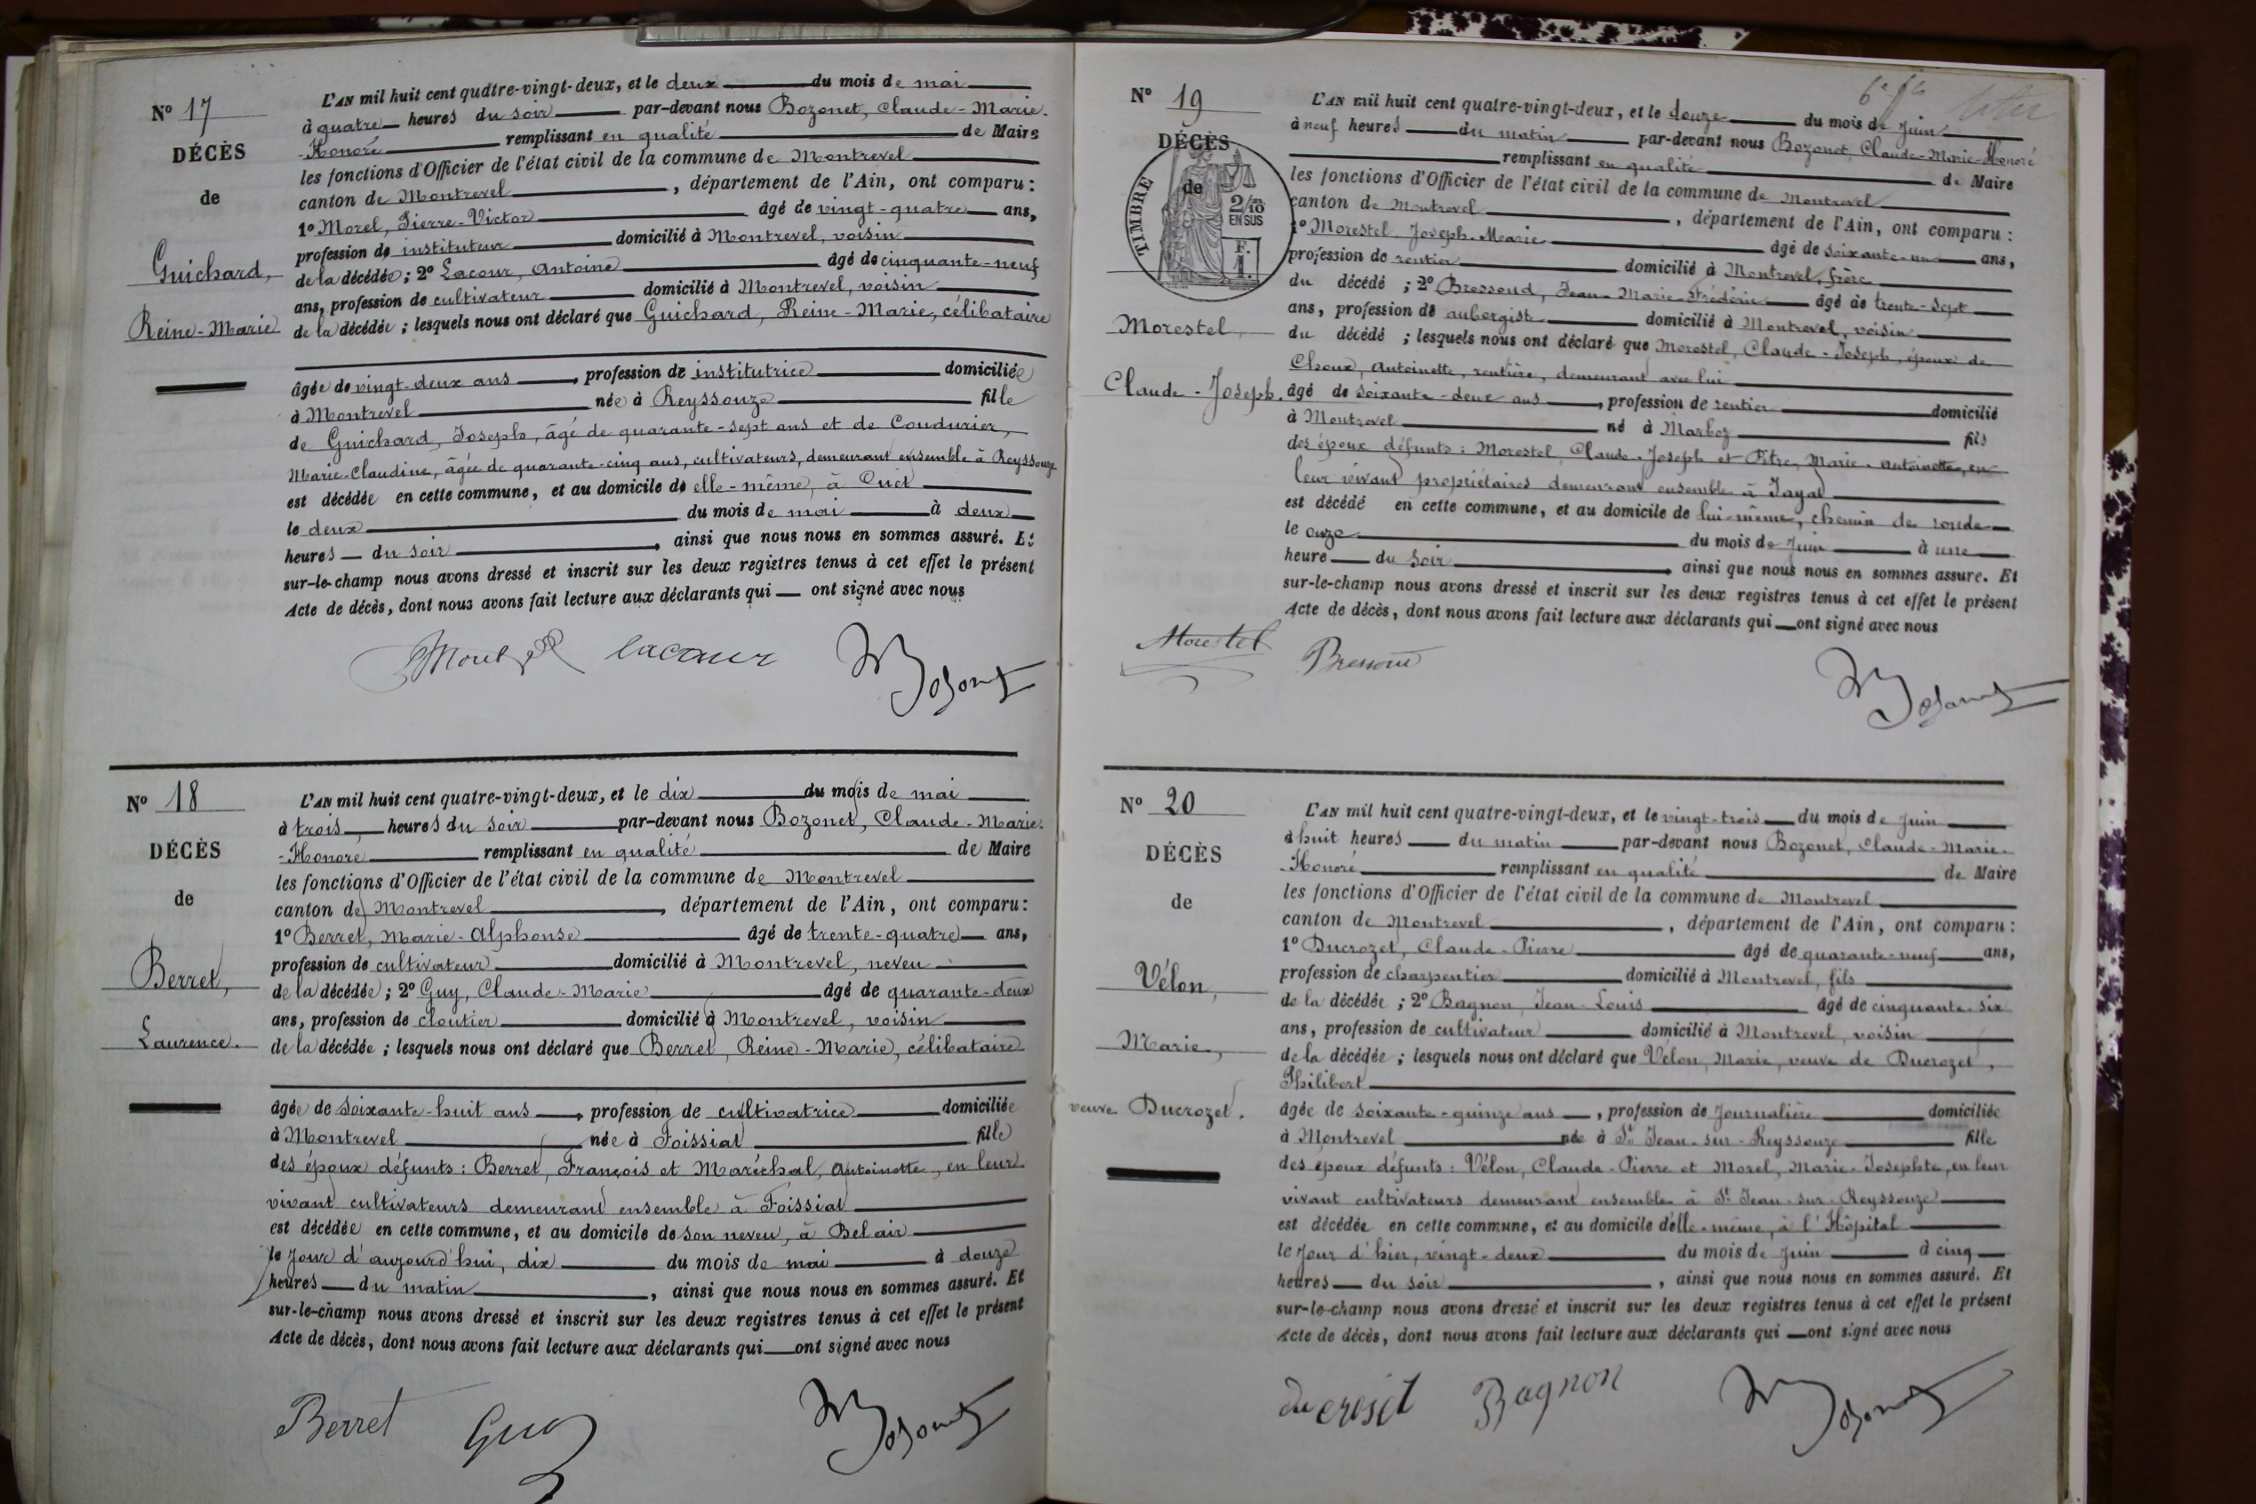 N° 17
DÉCÈS
de
Guichard,
Reine-Marie
L'AN mil huit cent quatre-vingt-deux, et le deux du mois de mai
à quatre heures du soir par-devant nous Bozonet, Claude-Marie-
-Honoré remplissant en qualité de Maire
les fonctions d'Officier de l'état civil de la commune de Montrevel
canton de Montrevel, département de l'Ain, ont comparu :
1° Morel, Pierre-Victor âgé de vingt-quatre ans,
profession de instituteur domicilié à Montrevel, voisin
de la décédée ; 2° Lacour, Antoine âgé de cinquante-neuf
ans, profession de cultivateur domicilié à Montrevel, voisin
de la décédée ; lesquels nous ont déclaré que Guichard, Reine-Marie, célibataire
âgée de vingt-deux ans, profession de institutrice domiciliée
à Montrevel née à Reyssouze fille
de Guichard, Joseph, âgé de quarante-sept ans et de Coudurier,
Marie-Claudine, âgée de quarante-cinq ans, cultivateurs, demeurant ensemble à Reyssouze
est décédée en cette commune, et au domicile de elle-même, à Cuet
le deux du mois de mai à deux
heures du soir, ainsi que nous nous en sommes assuré. Et
sur-le-champ nous avons dressé et inscrit sur les deux registres tenus à cet effet le présent
Acte de décès, dont nous avons fait lecture aux déclarants qui ont signé avec nous
Morel lacour Bozonet
N° 18
DÉCÈS
de
Berret,
Laurence.
L'AN mil huit cent quatre-vingt-deux, et le dix du mois de mai
à trois heures du soir par-devant nous Bozonet, Claude-Marie-
-Honoré remplissant en qualité de Maire
les fonctions d'Officier de l'état civil de la commune de Montrevel
canton de Montrevel, département de l'Ain, ont comparu :
1° Berret, Marie-Alphonse âgé de trente-quatre ans,
profession de cultivateur domicilié à Montrevel, neveu
de la décédée ; 2° Guy, Claude-Marie âgé de quarante-deux
ans, profession de cloutier domicilié à Montrevel, voisin
de la décédée ; lesquels nous ont déclaré que Berret, Reine-Marie, célibataire
âgée de soixante-huit ans, profession de cultivatrice domiciliée
à Montrevel née à Foissiat fille
des époux défunts : Berret, François et Maréchal, Antoinette, en leur
vivant cultivateurs demeurant ensemble à Foissiat
est décédée en cette commune, et au domicile de son neveu, à Bel air
le jour d'aujourd'hui, dix du mois de mai à douze
heures du matin, ainsi que nous nous en sommes assuré. Et
sur-le-champ nous avons dressé et inscrit sur les deux registres tenus à cet effet le présent
Acte de décès, dont nous avons fait lecture aux déclarants qui ont signé avec nous
Berret Guy Bozonet
N° 19
DÉCÈS
de
TIMBRE
2/10
EN SUS
F.
1.
Morestel,
Claude-Joseph.
L'AN mil huit cent quatre-vingt-deux, et le douze du mois de juin
à neuf heures du matin par-devant nous Bozonet, Claude-Marie-Honoré
remplissant en qualité de Maire
les fonctions d'Officier de l'état civil de la commune de Montrevel
canton de Montrevel, département de l'Ain, ont comparu :
1° Morestel, Joseph-Marie âgé de soixante-un ans,
profession de rentier domicilié à Montrevel, frère
du décédé ; 2° Bressoud, Jean-Marie-Frédéric âgé de trente-sept
ans, profession de aubergiste domicilié à Montrevel, voisin
du décédé ; lesquels nous ont déclaré que Morestel, Claude-Joseph, époux de
Choux, Antoinette, rentière, demeurant avec lui
âgé de soixante-deux ans, profession de rentier domicilié
à Montrevel né à Marboz fils
des époux défunts : Morestel, Claude-Joseph et Pitre, Marie-Antoinette, en
leur vivant propriétaires demeurant ensemble à Jayat
est décédé en cette commune, et au domicile de lui-même, chemin de ronde
le onze du mois de juin à une
heure du soir, ainsi que nous nous en sommes assuré. Et
sur-le-champ nous avons dressé et inscrit sur les deux registres tenus à cet effet le présent
Acte de décès, dont nous avons fait lecture aux déclarants qui ont signé avec nous
Morestel Bressoud Bozonet
N° 20
DÉCÈS
de
Vélon,
Marie,
veuve Ducrozet.
L'AN mil huit cent quatre-vingt-deux, et le vingt-trois du mois de juin
à huit heures du matin par-devant nous Bozonet, Claude-Marie-
-Honoré remplissant en qualité de Maire
les fonctions d'Officier de l'état civil de la commune de Montrevel
canton de Montrevel, département de l'Ain, ont comparu :
1° Ducrozet, Claude-Pierre âgé de quarante-neuf ans,
profession de charpentier domicilié à Montrevel, fils
de la décédée ; 2° Bagnon, Jean-Louis âgé de cinquante-six
ans, profession de cultivateur domicilié à Montrevel, voisin
de la décédée ; lesquels nous ont déclaré que Vélon, Marie, veuve de Ducrozet,
Philibert
âgée de soixante-quinze ans, profession de journalière domiciliée
à Montrevel née à St Jean-sur-Reyssouze fille
des époux défunts : Vélon, Claude-Pierre et Morel, Marie-Josephte, en leur
vivant cultivateurs demeurant ensemble à St Jean-sur-Reyssouze
est décédée en cette commune, et au domicile d'elle-même, à l'Hôpital
le jour d'hier, vingt-deux du mois de juin à cinq
heures du soir, ainsi que nous nous en sommes assuré. Et
sur-le-champ nous avons dressé et inscrit sur les deux registres tenus à cet effet le présent
Acte de décès, dont nous avons fait lecture aux déclarants qui ont signé avec nous
ducroset Bagnon Bozonet